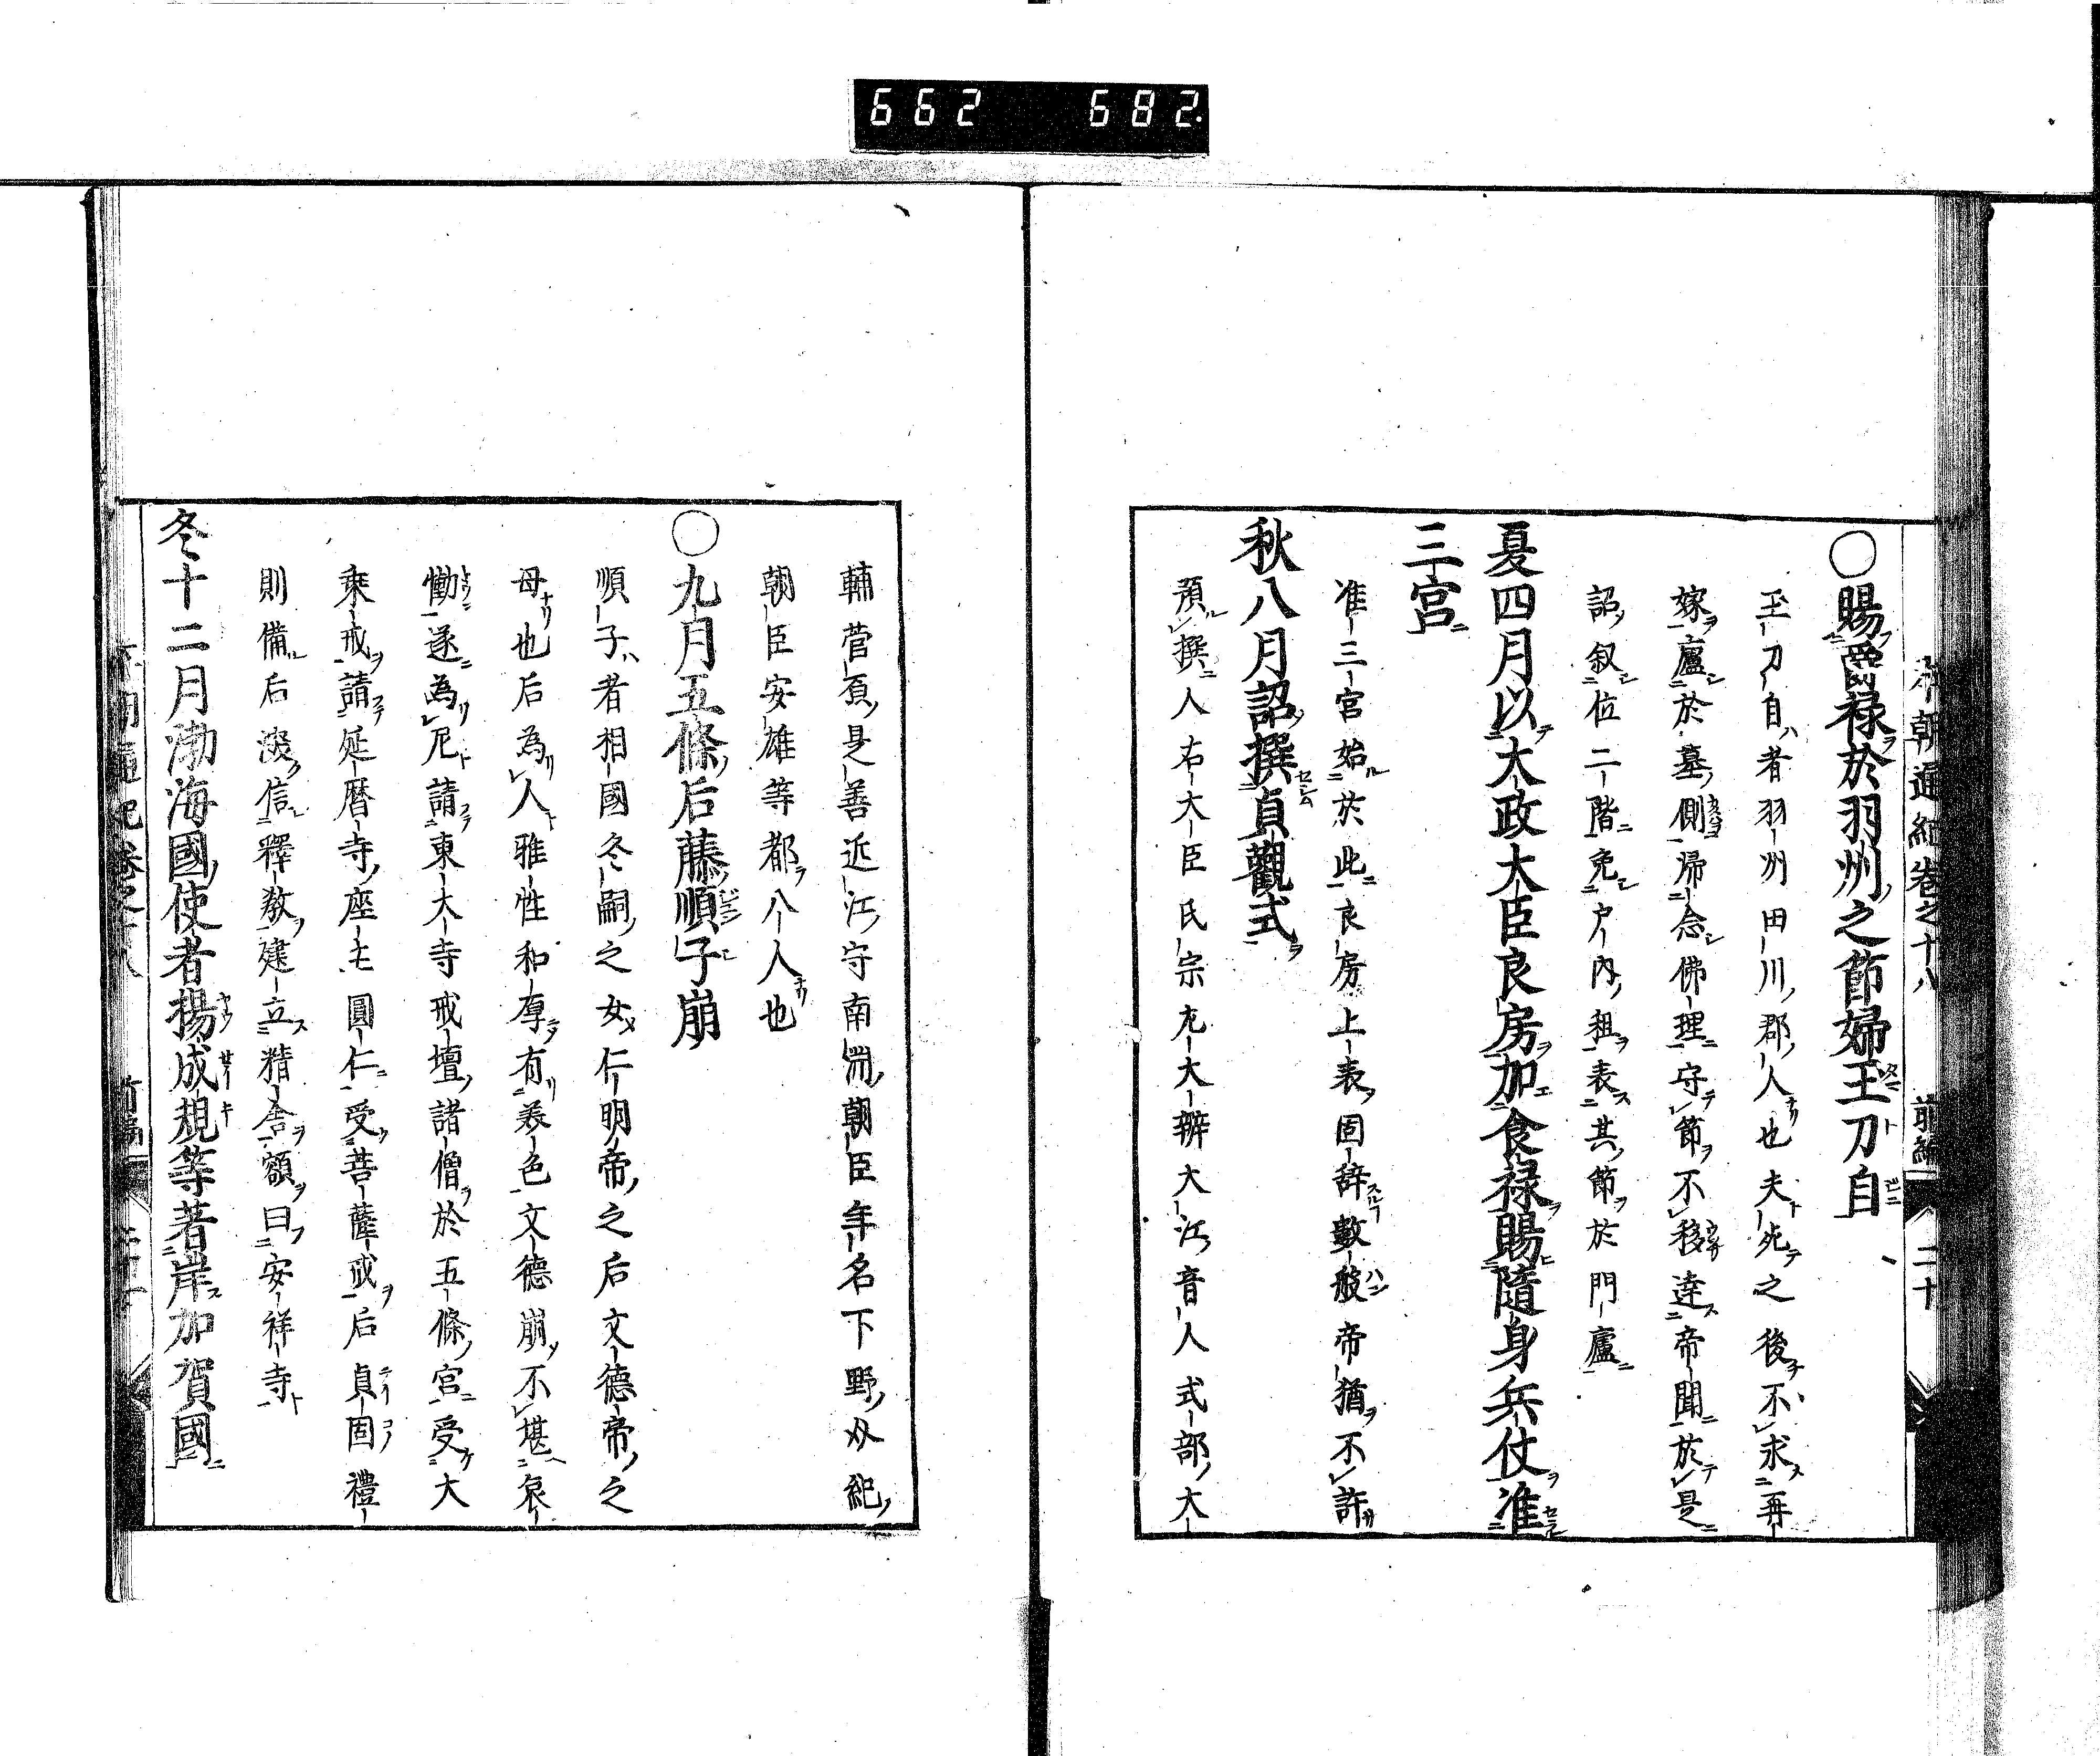 662 682
本朝通紀卷之十八 前編 二十
○賜爵禄於羽州之節婦王刀自
王刀自者羽州田川郡人也夫死之後不求再
嫁廬於墓側帰念佛理守節不移達帝聞於是
詔叙位二階免戸内租表其節於門廬
夏四月以大政大臣良房加食禄賜隨身兵仗准
三宮
准三宮始於此良房上表固辞數般帝猶不許
秋八月詔撰貞觀式
預撰人右大臣氏宗左大辨大江音人式部大
輔菅原是善近江守南淵朝臣年名下野紀
朝臣安雄等都八人也
○九月五條后藤順子崩
順子者相國冬嗣之女仁明帝之后文德帝之
母也后為人雅性和厚有美色文德崩不堪哀
慟遂為尼請東大寺戒壇諸僧於五條宮受大
乘戒請延暦寺座主圓仁受菩薩戒后貞固禮
則備后深信釋教建立精舎額曰安祥寺
冬十二月渤海國使者揚成規等著岸加賀國